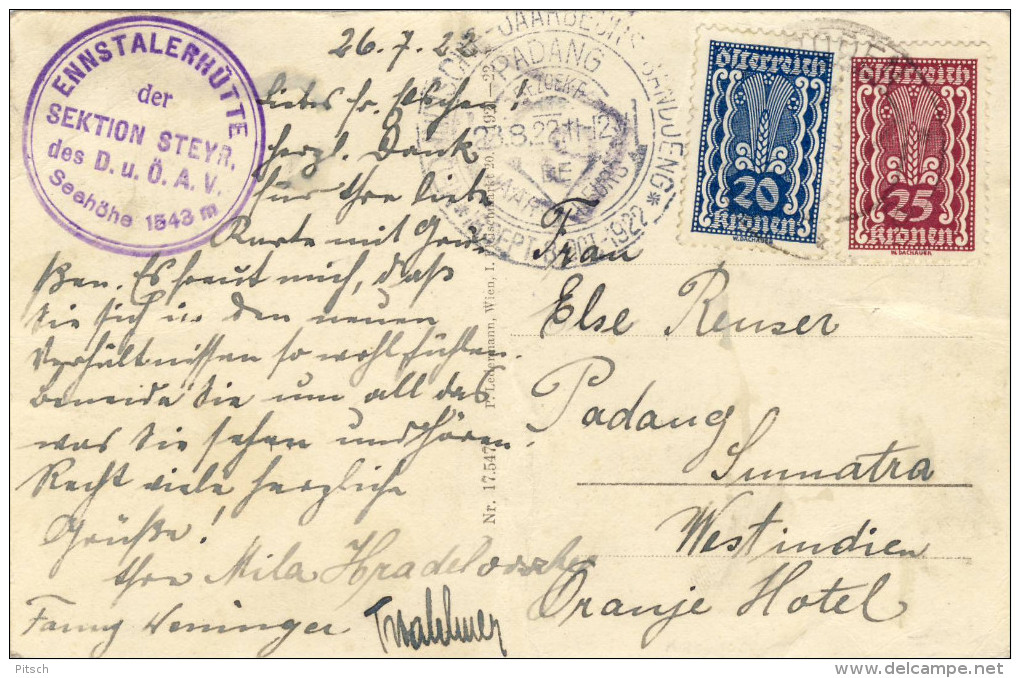 ENNSTALERHÜTTE
der
SEKTION STEYR.
des D. u. Ö. A. V.
Seehöhe 1543 m
26.7.22
Liebe Fr.
herzl. Dank
für Ihre liebe
Karte mit Grü-
ßen. Es freut mich, daß
Sie sich in den neuen
Verhältnissen so wohl fühlen.
Beneide Sie um all das
was Sie sehen und hören.
Recht viele herzliche
Grüße!
Ihre Mila
Fanny Weninger
Nr. 17.547 P. Ledermann, Wien, I.
JAARBEURS
BANDOENG
PADANG
23.8.22.11-12
SEPT. OCT. 1922
Österreich
20
Kronen
W. DACHAUER
Österreich
25
Kronen
W. DACHAUER
Frau
Else Reuser
Padang
Sumatra
Westindien
Oranje Hotel
Pitsch
delcampe.net